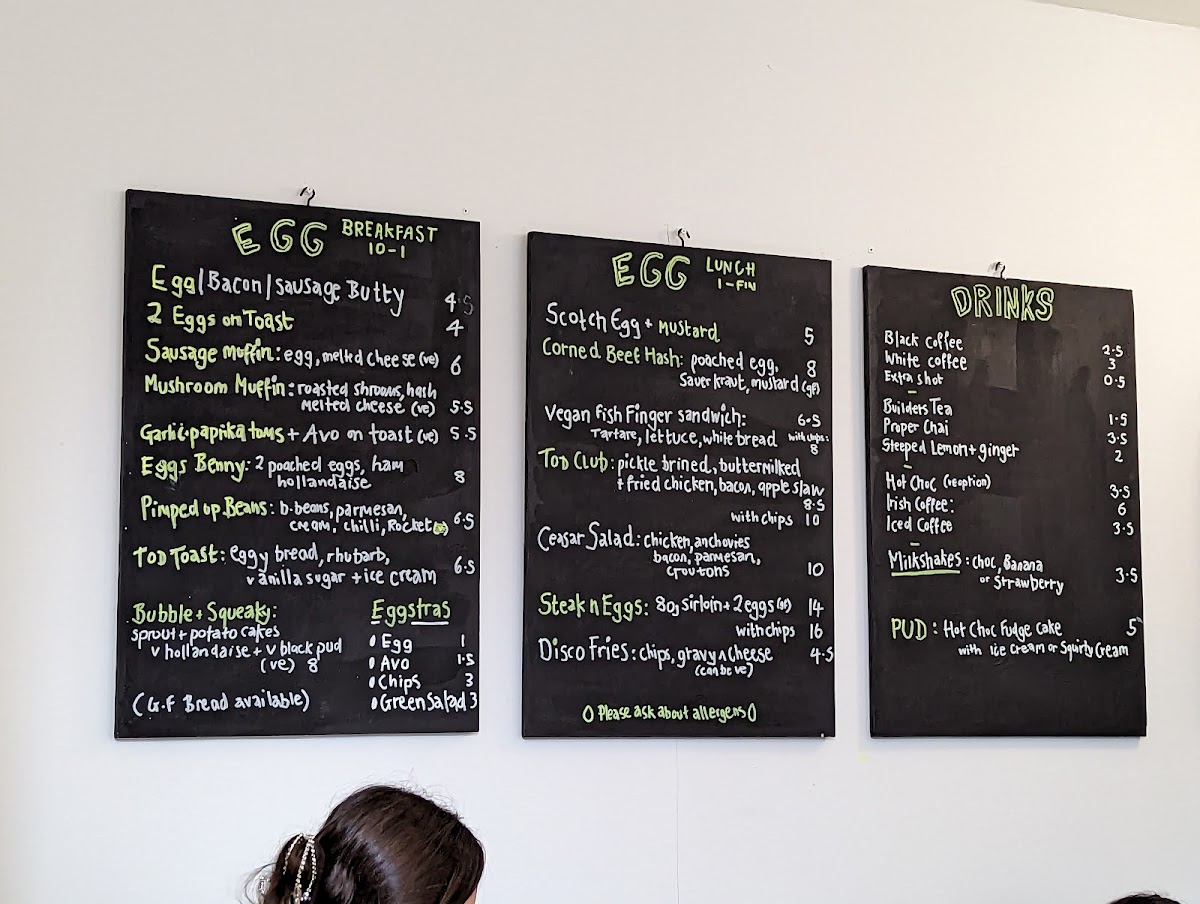 EGG BREAKFAST
10-1
Egg/Bacon/Sausage Butty 4.5
2 Eggs on Toast 4
Sausage muffin: egg, melted cheese (ve) 6
Mushroom Muffin: roasted shrooms, hash
melted cheese (ve) 5.5
Garlic-paprika toms + Avo on toast (ve) 5.5
Eggs Benny: 2 poached eggs, ham
hollandaise 8
Pimped up Beans: b-beans, parmesan,
cream, chilli, Rocket 6.5
TOD TOAST: eggy bread, rhubarb,
vanilla sugar + ice cream 6.5
Bubble + Squeaky:
sprout + potato cakes
v hollandaise + v black pud
(ve) 8
(G.F Bread available)
Eggstras
Egg 1
Avo 1.5
Chips 3
Green Salad 3
EGG LUNCH
1-FIN
Scotch Egg + Mustard 5
Corned Beef Hash: poached egg, 8
Sauerkraut, mustard (gf)
Vegan Fish Finger sandwich: 6.5
Tartare, lettuce, white bread with chips:
8
TOD CLUB: pickle brined, buttermilked
+ fried chicken, bacon, apple slaw
8.5
with chips 10
Ceasar Salad: chicken, anchovies
bacon, parmesan,
croutons 10
Steak n Eggs: 8oz sirloin + 2 eggs 14
with chips 16
Disco Fries: chips, gravy n cheese 4.5
(can be ve)
Please ask about allergens
DRINKS
Black Coffee 2.5
White coffee 3
Extra shot 0.5
Builders Tea 1.5
Proper Chai 3.5
Steeped Lemon + ginger 2
Hot Choc (ve option) 3.5
Irish Coffee: 6
Iced Coffee 3.5
Milkshakes: Choc, Banana
or Strawberry 3.5
PUD: Hot Choc Fudge Cake 5
with Ice Cream or Squirty Cream